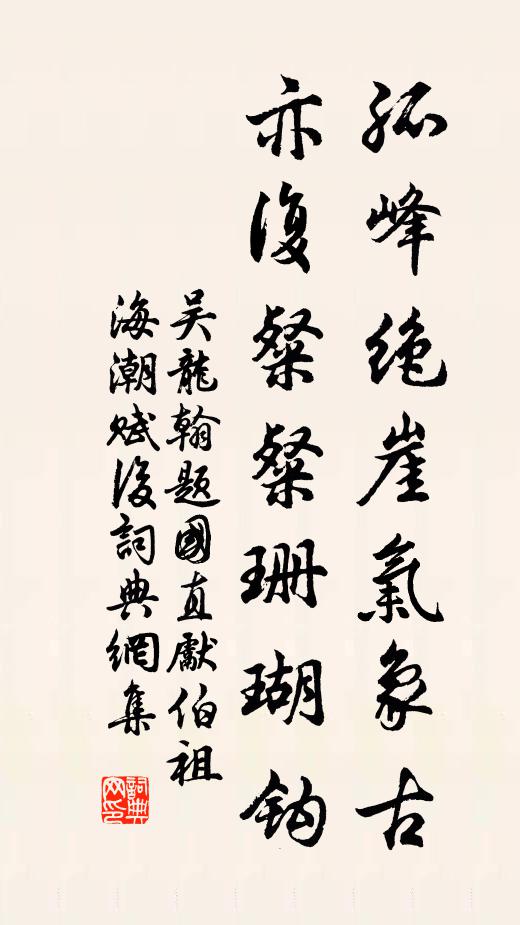 孤峰绝崖氣象古
亦復粲粲珊瑚鈎
吴龍翰題國直獻伯祖
海潮賦後詞典網集
詞典網印